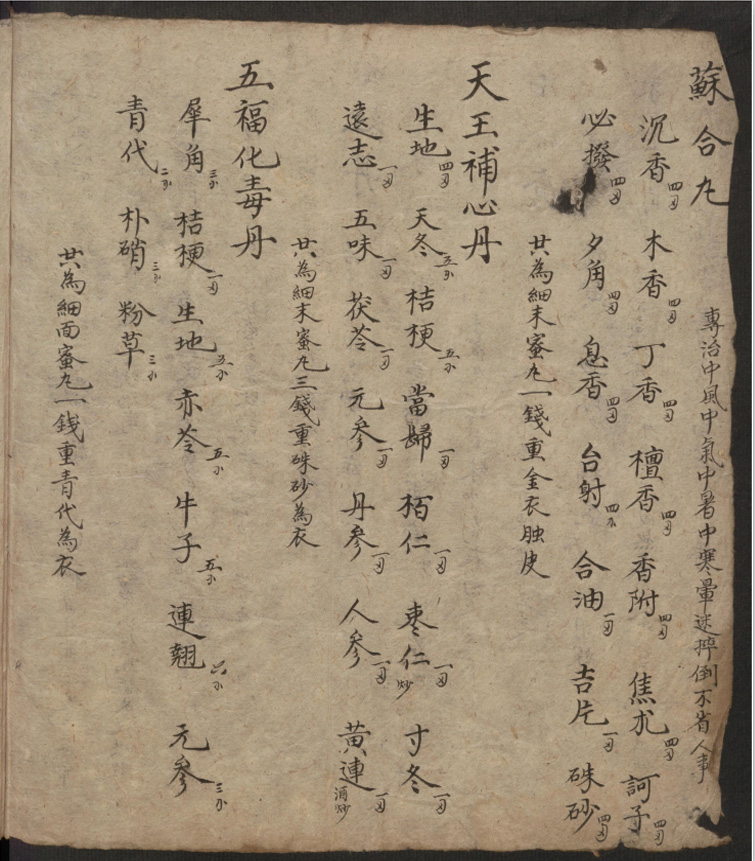 蘇合丸 專治中風中氣中暑中寒暈迷猝倒不省人事
沉香四刄 木香四刄 丁香四刄 檀香四刄 香附四刄 焦朮四刄 訶子四刄
必撥四刄 夕角四刄 息香四刄 台射四 合油一刄 吉片一刄 硃砂四刄
共為細末蜜丸一錢重金衣 皮
天王補心丹
生地四刄 天冬五 桔梗五 當歸一刄 栢仁一刄 枣仁炒一刄 寸冬一刄
遠志一刄 五味一刄 茯苓一刄 元參一刄 丹參一刄 人參一刄 黃連酒炒一刄
共為細末蜜丸三錢重硃砂為衣
五福化毒丹
犀角三 桔梗一刄 生地五 赤苓五 牛子五 連翹六 元參三
青代二 朴硝三 粉草三
共為細面蜜丸一錢重青代為衣